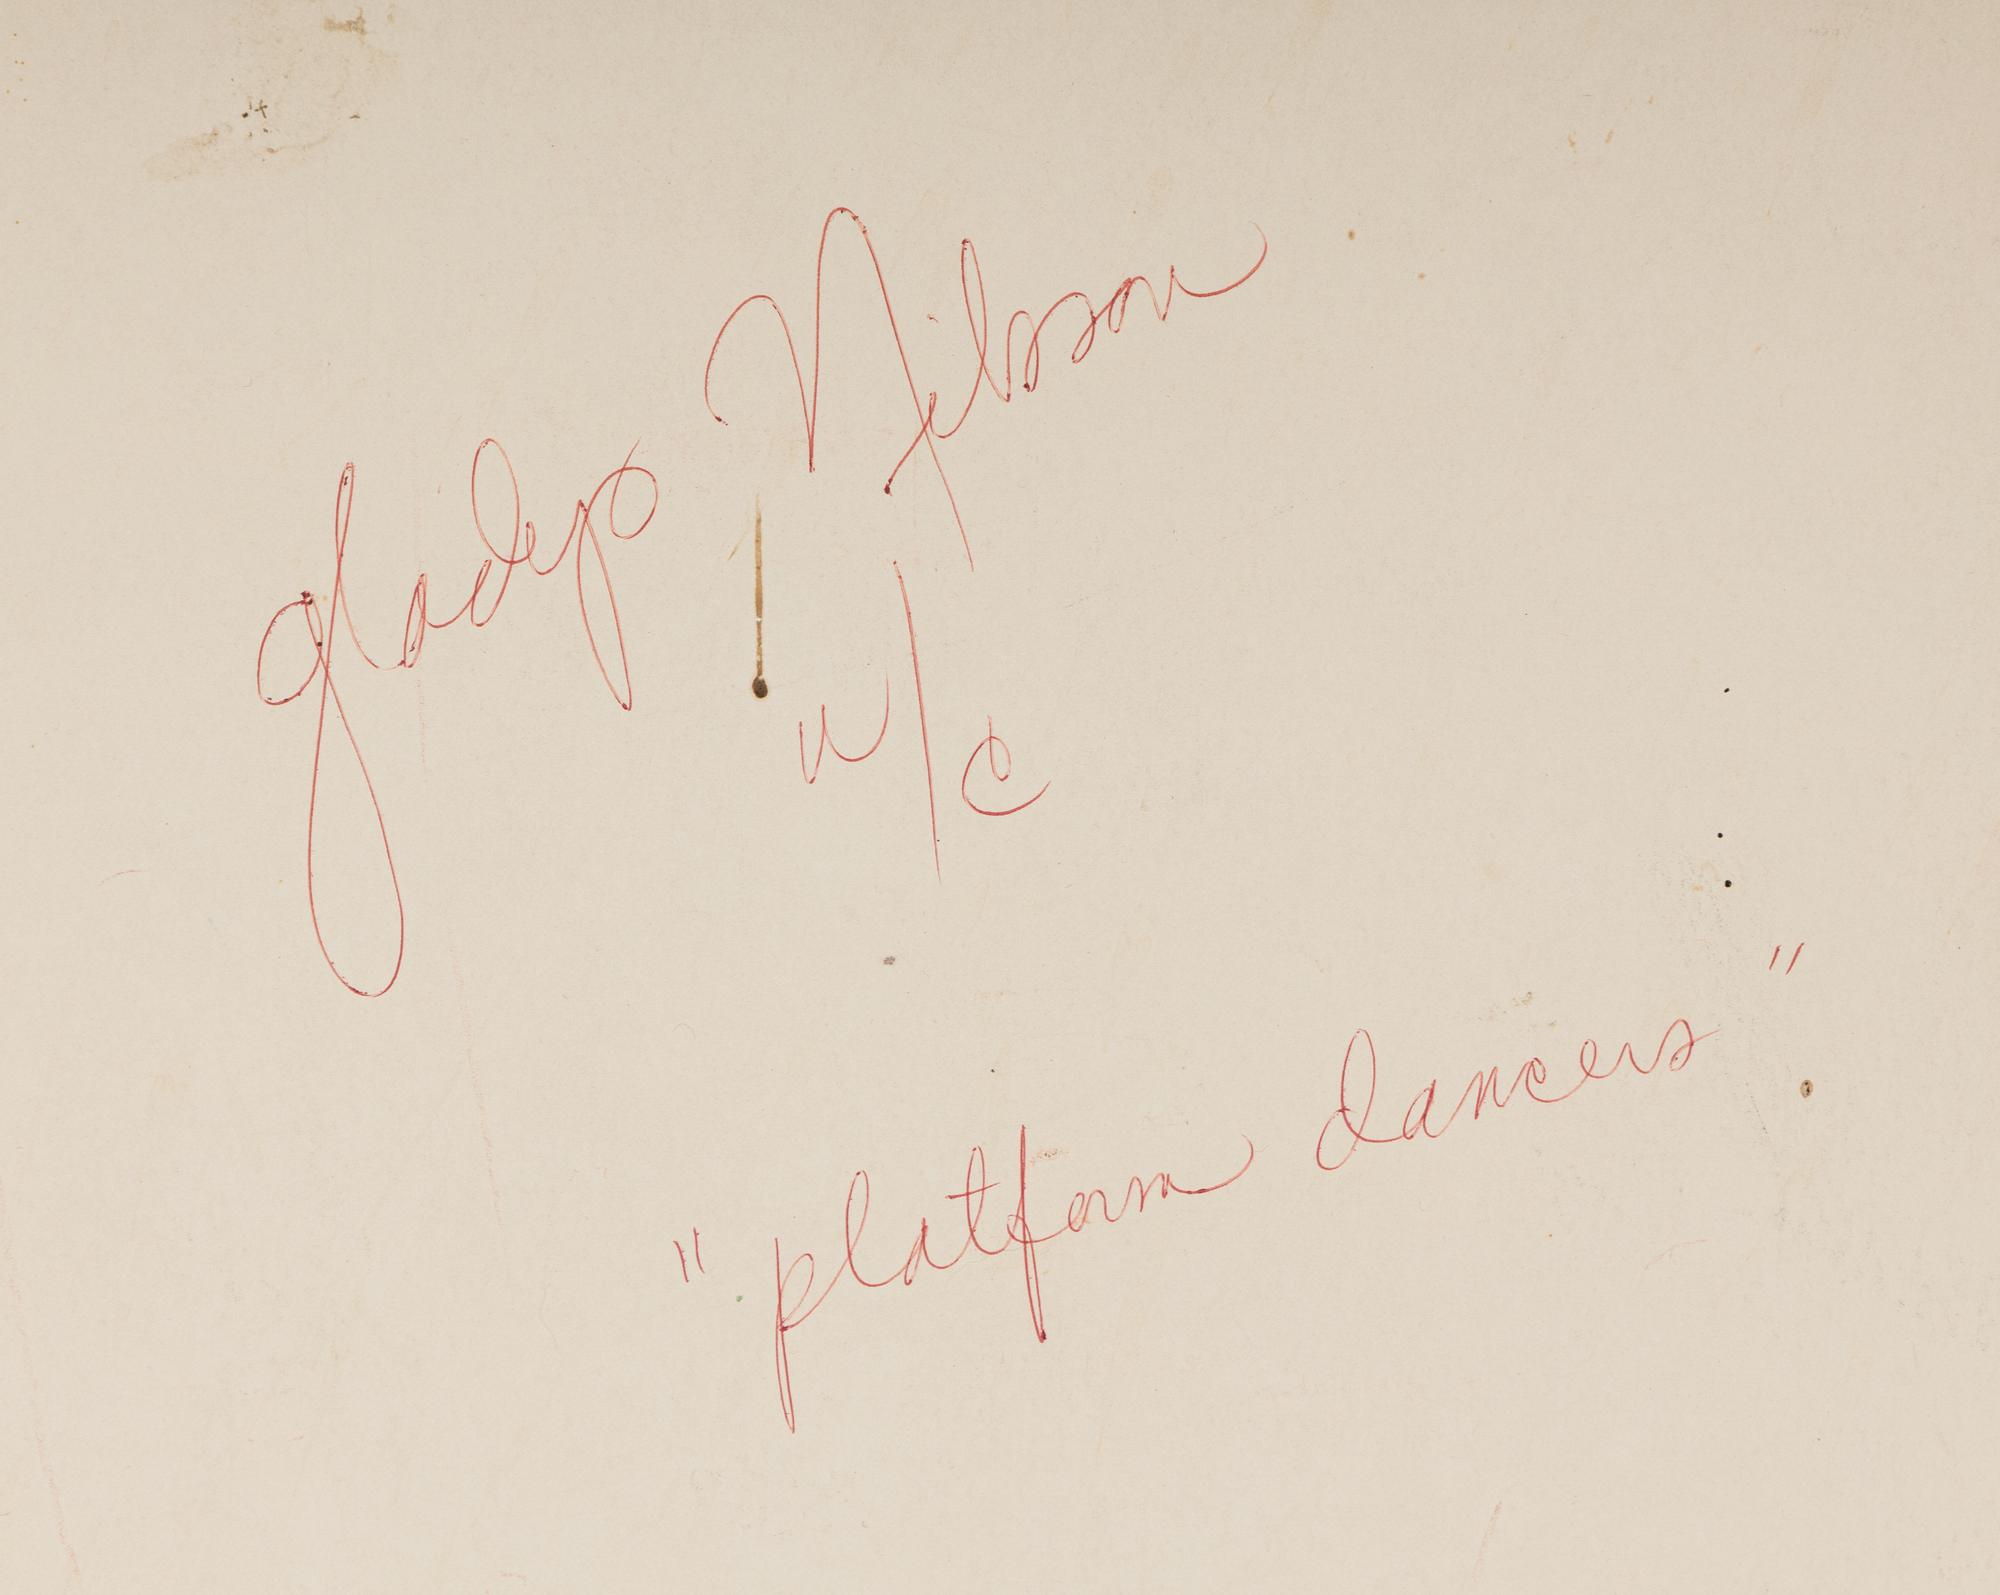 gladys Nilsson
w/c
"platform dancers"